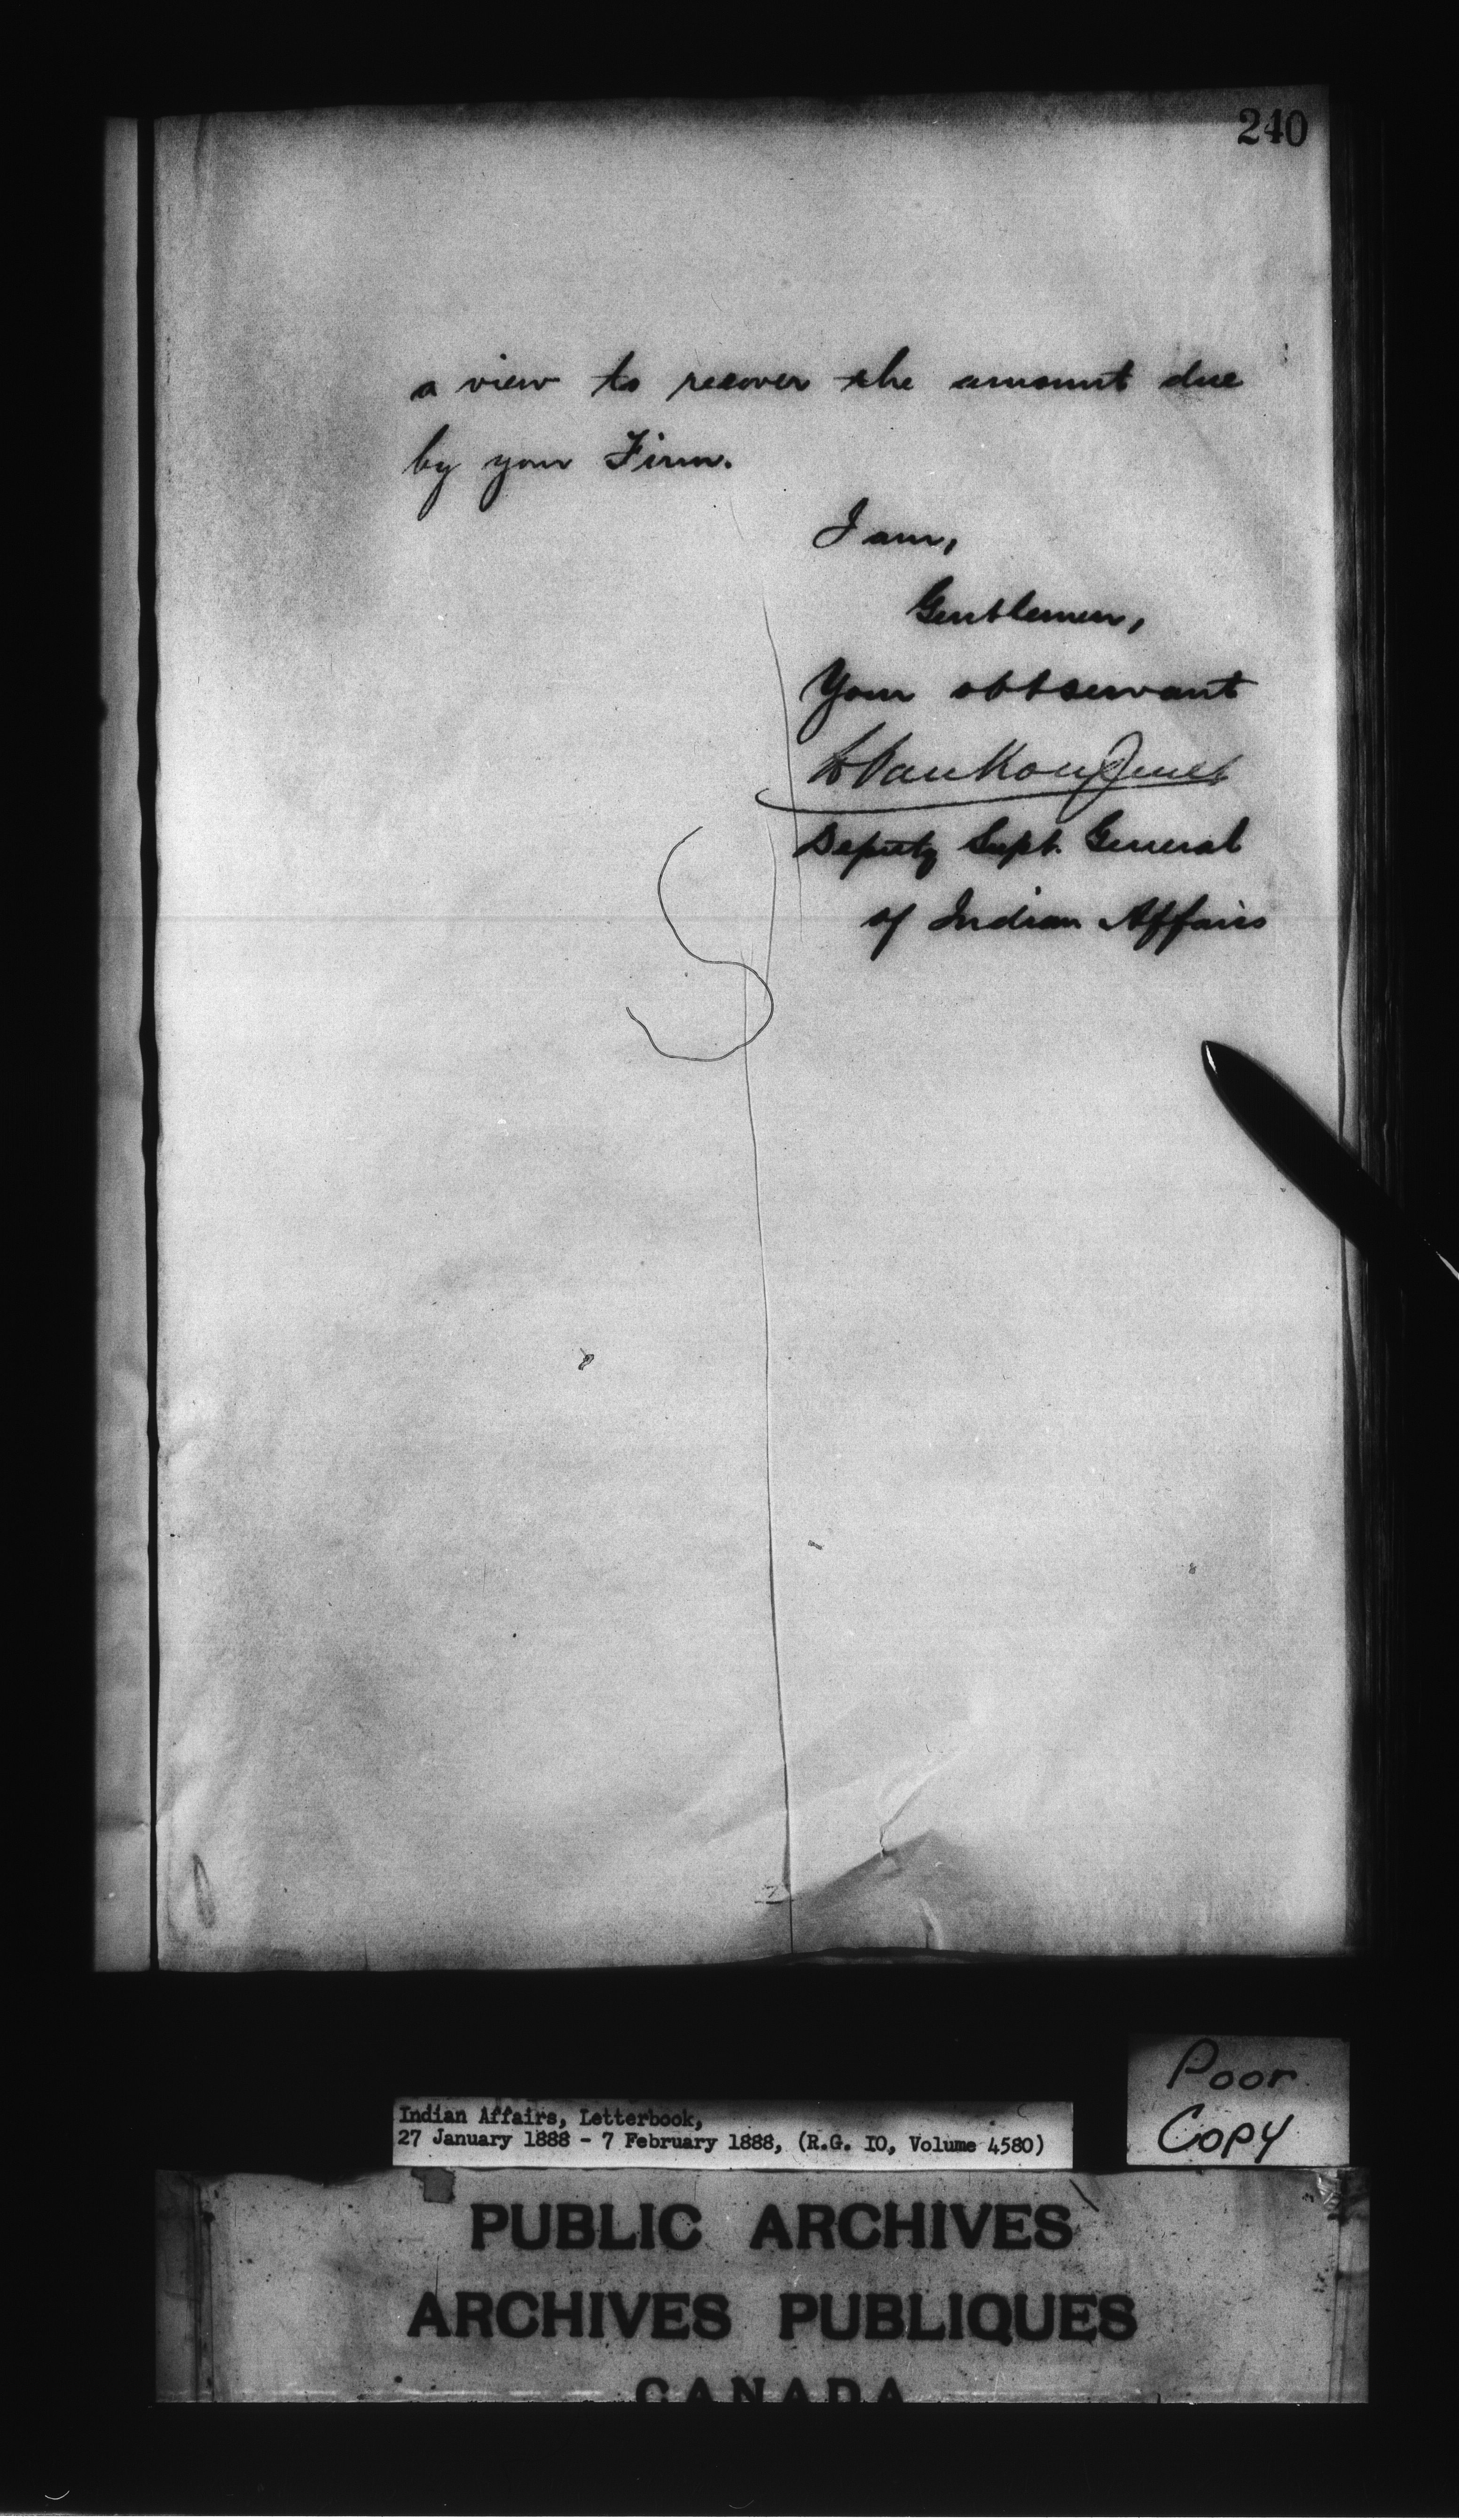 240
a view to recover the amount due
by your Firm.
I am,
Gentlemen,
Your obt servant
L VanKoughnet
Deputy Supt. General
of Indian Affairs
Poor
Copy
Indian Affairs, Letterbook,
27 January 1888 - 7 February 1888, (R.G. 10, Volume 4580)
PUBLIC ARCHIVES
ARCHIVES PUBLIQUES
CANADA